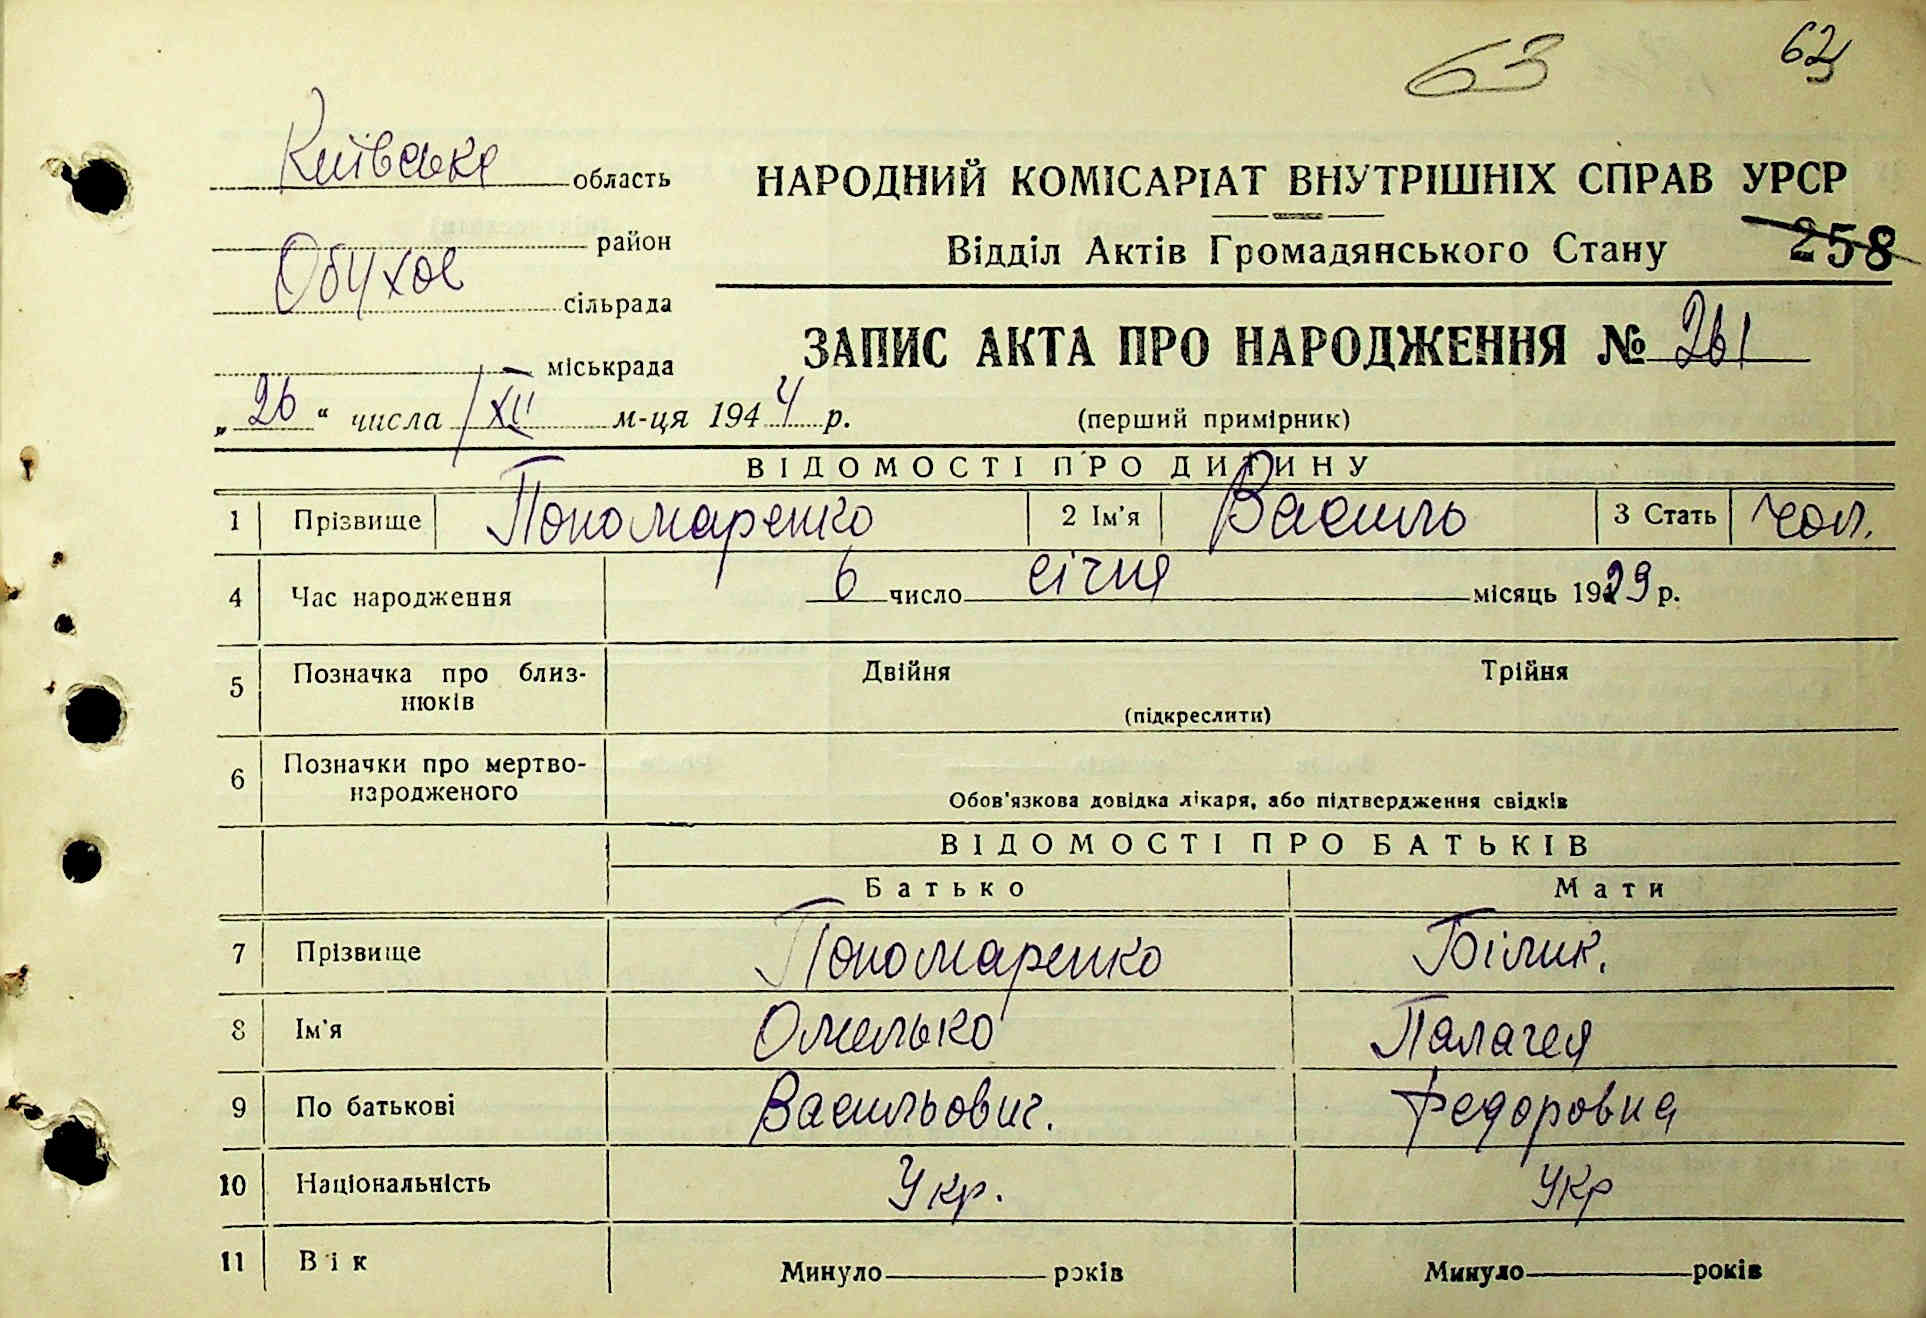 63 62
Київська область
НАРОДНИЙ КОМІСАРІАТ ВНУТРІШНІХ СПРАВ УРСР
район
Відділ Актів Громадянського Стану
258
Обухов
сільрада
ЗАПИС АКТА ПРО НАРОДЖЕННЯ № 261
міськрада
„26“ числа XII м-ця 1944 р.
(перший примірник)
ВІДОМОСТІ ПРО ДИТИНУ
1 Прізвище Пономаренко 2 Ім'я Василь 3 Стать чол.
4 Час народження 6 число січня місяць 1929 р.
5 Позначка про близ-
нюків
Двійня Трійня
(підкреслити)
6 Позначки про мертво-
народженого
Обов'язкова довідка лікаря, або підтвердження свідків
ВІДОМОСТІ ПРО БАТЬКІВ
Батько Мати
7 Прізвище Пономаренко Білик.
8 Ім'я Омелько Палагея
9 По батькові Васильович. Федоровна
10 Національність Укр. Укр
11 Вік Минуло років Минуло років